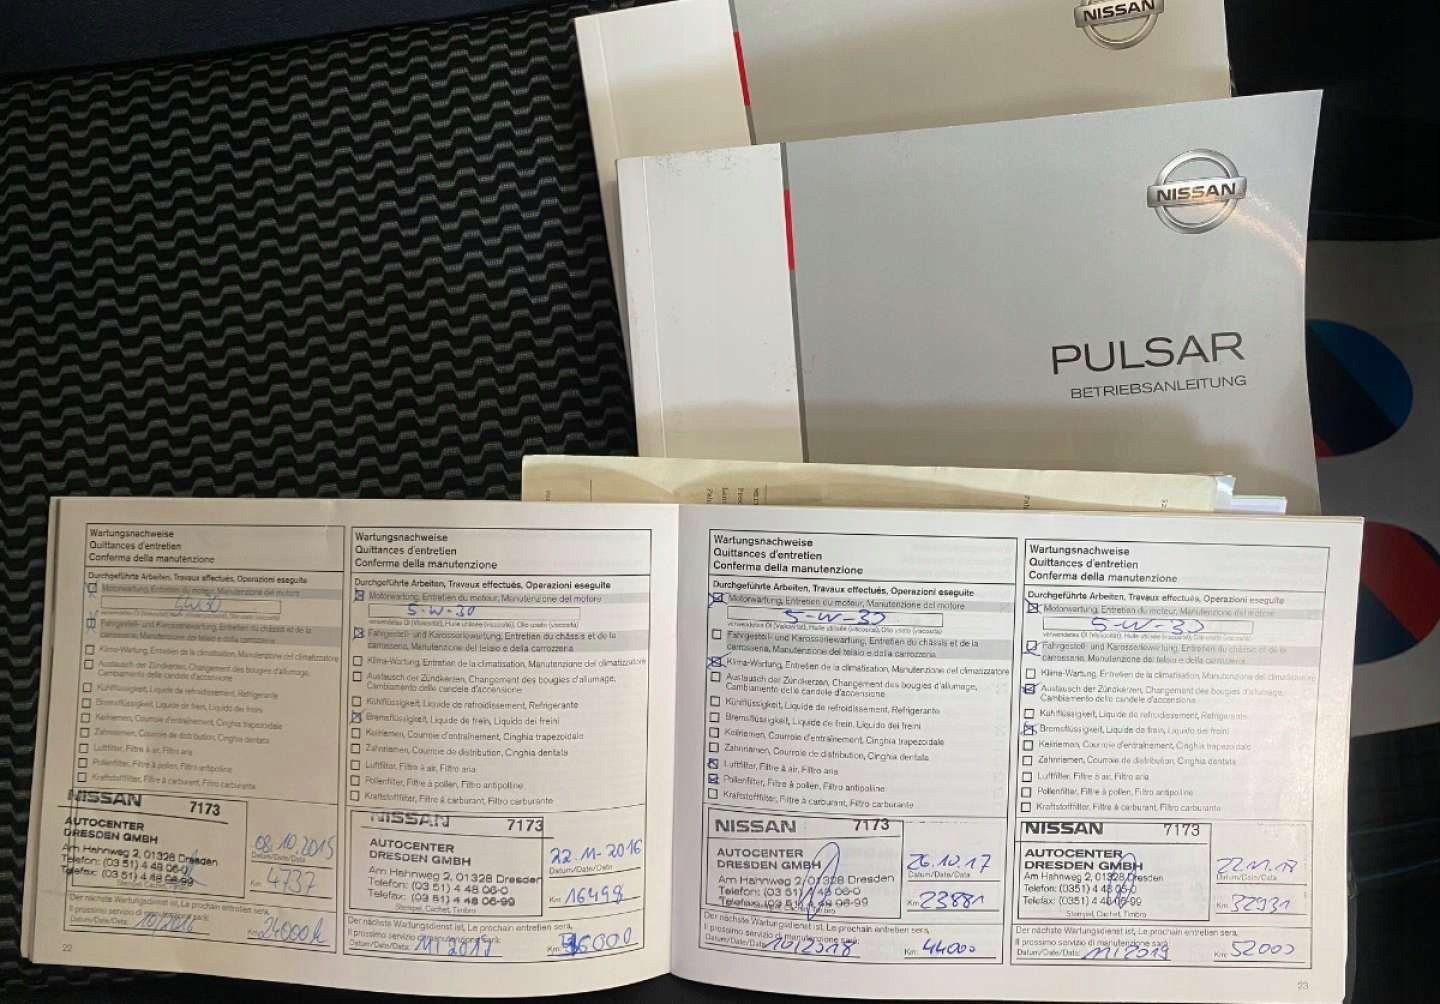 NISSAN
NISSAN
PULSAR
BETRIEBSANLEITUNG
Wartungsnachweise
Quittances d'entretien
Conferma della manutenzione
Durchgeführte Arbeiten, Travaux effectués, Operazioni eseguite
Motorwartung, Entretien du moteur, Manutenzione del motore
5W30
verwendetes Öl (Viskosität), Huile utilisée (viscosité), Olio usato (viscosità)
Fahrgestell- und Karosseriewartung, Entretien du châssis et de la
carrosserie, Manutenzione del telaio e della carrozzeria
Klima-Wartung, Entretien de la climatisation, Manutenzione del climatizzatore
Austausch der Zündkerzen, Changement des bougies d'allumage,
Cambiamento delle candele d'accensione
Kühlflüssigkeit, Liquide de refroidissement, Refrigerante
Bremsflüssigkeit, Liquide de frein, Liquido dei freini
Keilriemen, Courroie d'entraînement, Cinghia trapezoidale
Zahnriemen, Courroie de distribution, Cinghia dentata
Luftfilter, Filtre à air, Filtro aria
Pollenfilter, Filtre à pollen, Filtro antipolline
Kraftstofffilter, Filtre à carburant, Filtro carburante
NISSAN 7173
AUTOCENTER
DRESDEN GMBH
Am Hahnweg 2, 01328 Dresden
Telefon: (03 51) 4 48 06-0
Telefax: (03 51) 4 48 06-99
Stempel, Cachet, Timbro
08.10.2015
Datum/Date/Data
Km: 4737
Der nächste Wartungsdienst ist, Le prochain entretien sera,
Il prossimo servizio di manutenzione sarà:
Datum/Date/Data: 10/2016 Km: 24000
22
Wartungsnachweise
Quittances d'entretien
Conferma della manutenzione
Durchgeführte Arbeiten, Travaux effectués, Operazioni eseguite
Motorwartung, Entretien du moteur, Manutenzione del motore
5-W-30
verwendetes Öl (Viskosität), Huile utilisée (viscosité), Olio usato (viscosità)
Fahrgestell- und Karosseriewartung, Entretien du châssis et de la
carrosserie, Manutenzione del telaio e della carrozzeria
Klima-Wartung, Entretien de la climatisation, Manutenzione del climatizzatore
Austausch der Zündkerzen, Changement des bougies d'allumage,
Cambiamento delle candele d'accensione
Kühlflüssigkeit, Liquide de refroidissement, Refrigerante
Bremsflüssigkeit, Liquide de frein, Liquido dei freini
Keilriemen, Courroie d'entraînement, Cinghia trapezoidale
Zahnriemen, Courroie de distribution, Cinghia dentata
Luftfilter, Filtre à air, Filtro aria
Pollenfilter, Filtre à pollen, Filtro antipolline
Kraftstofffilter, Filtre à carburant, Filtro carburante
NISSAN 7173
AUTOCENTER
DRESDEN GMBH
Am Hahnweg 2, 01328 Dresden
Telefon: (03 51) 4 48 06-0
Telefax: (03 51) 4 48 06-99
Stempel, Cachet, Timbro
22.11.2016
Datum/Date/Data
Km: 16498
Der nächste Wartungsdienst ist, Le prochain entretien sera,
Il prossimo servizio di manutenzione sarà:
Datum/Date/Data: Km: 36000
Wartungsnachweise
Quittances d'entretien
Conferma della manutenzione
Durchgeführte Arbeiten, Travaux effectués, Operazioni eseguite
Motorwartung, Entretien du moteur, Manutenzione del motore
5-W-30
verwendetes Öl (Viskosität), Huile utilisée (viscosité), Olio usato (viscosità)
Fahrgestell- und Karosseriewartung, Entretien du châssis et de la
carrosserie, Manutenzione del telaio e della carrozzeria
Klima-Wartung, Entretien de la climatisation, Manutenzione del climatizzatore
Austausch der Zündkerzen, Changement des bougies d'allumage,
Cambiamento delle candele d'accensione
Kühlflüssigkeit, Liquide de refroidissement, Refrigerante
Bremsflüssigkeit, Liquide de frein, Liquido dei freini
Keilriemen, Courroie d'entraînement, Cinghia trapezoidale
Zahnriemen, Courroie de distribution, Cinghia dentata
Luftfilter, Filtre à air, Filtro aria
Pollenfilter, Filtre à pollen, Filtro antipolline
Kraftstofffilter, Filtre à carburant, Filtro carburante
NISSAN 7173
AUTOCENTER
DRESDEN GMBH
Am Hahnweg 2, 01328 Dresden
Telefon: (03 51) 4 48 06-0
Telefax: (03 51) 4 48 06-99
26.10.17
Datum/Date/Data
Km: 23881
Der nächste Wartungsdienst ist, Le prochain entretien sera,
Il prossimo servizio di manutenzione sarà:
Datum/Date/Data: 10/2018 Km: 44000
Wartungsnachweise
Quittances d'entretien
Conferma della manutenzione
Durchgeführte Arbeiten, Travaux effectués, Operazioni eseguite
Motorwartung, Entretien du moteur, Manutenzione del motore
5-W-30
verwendetes Öl (Viskosität), Huile utilisée (viscosité), Olio usato (viscosità)
Fahrgestell- und Karosseriewartung, Entretien du châssis et de la
carrosserie, Manutenzione del telaio e della carrozzeria
Klima-Wartung, Entretien de la climatisation, Manutenzione del climatizzatore
Austausch der Zündkerzen, Changement des bougies d'allumage,
Cambiamento delle candele d'accensione
Kühlflüssigkeit, Liquide de refroidissement, Refrigerante
Bremsflüssigkeit, Liquide de frein, Liquido dei freini
Keilriemen, Courroie d'entraînement, Cinghia trapezoidale
Zahnriemen, Courroie de distribution, Cinghia dentata
Luftfilter, Filtre à air, Filtro aria
Pollenfilter, Filtre à pollen, Filtro antipolline
Kraftstofffilter, Filtre à carburant, Filtro carburante
NISSAN 7173
AUTOCENTER
DRESDEN GMBH
Am Hahnweg 2, 01328 Dresden
Telefon: (0351) 4 48 06-0
Telefax: (03 51) 4 48 06-99
Stempel, Cachet, Timbro
22.11.18
Datum/Date/Data
Km: 32931
Der nächste Wartungsdienst ist, Le prochain entretien sera,
Il prossimo servizio di manutenzione sarà:
Datum/Date/Data: 11/2019 Km: 52000
23